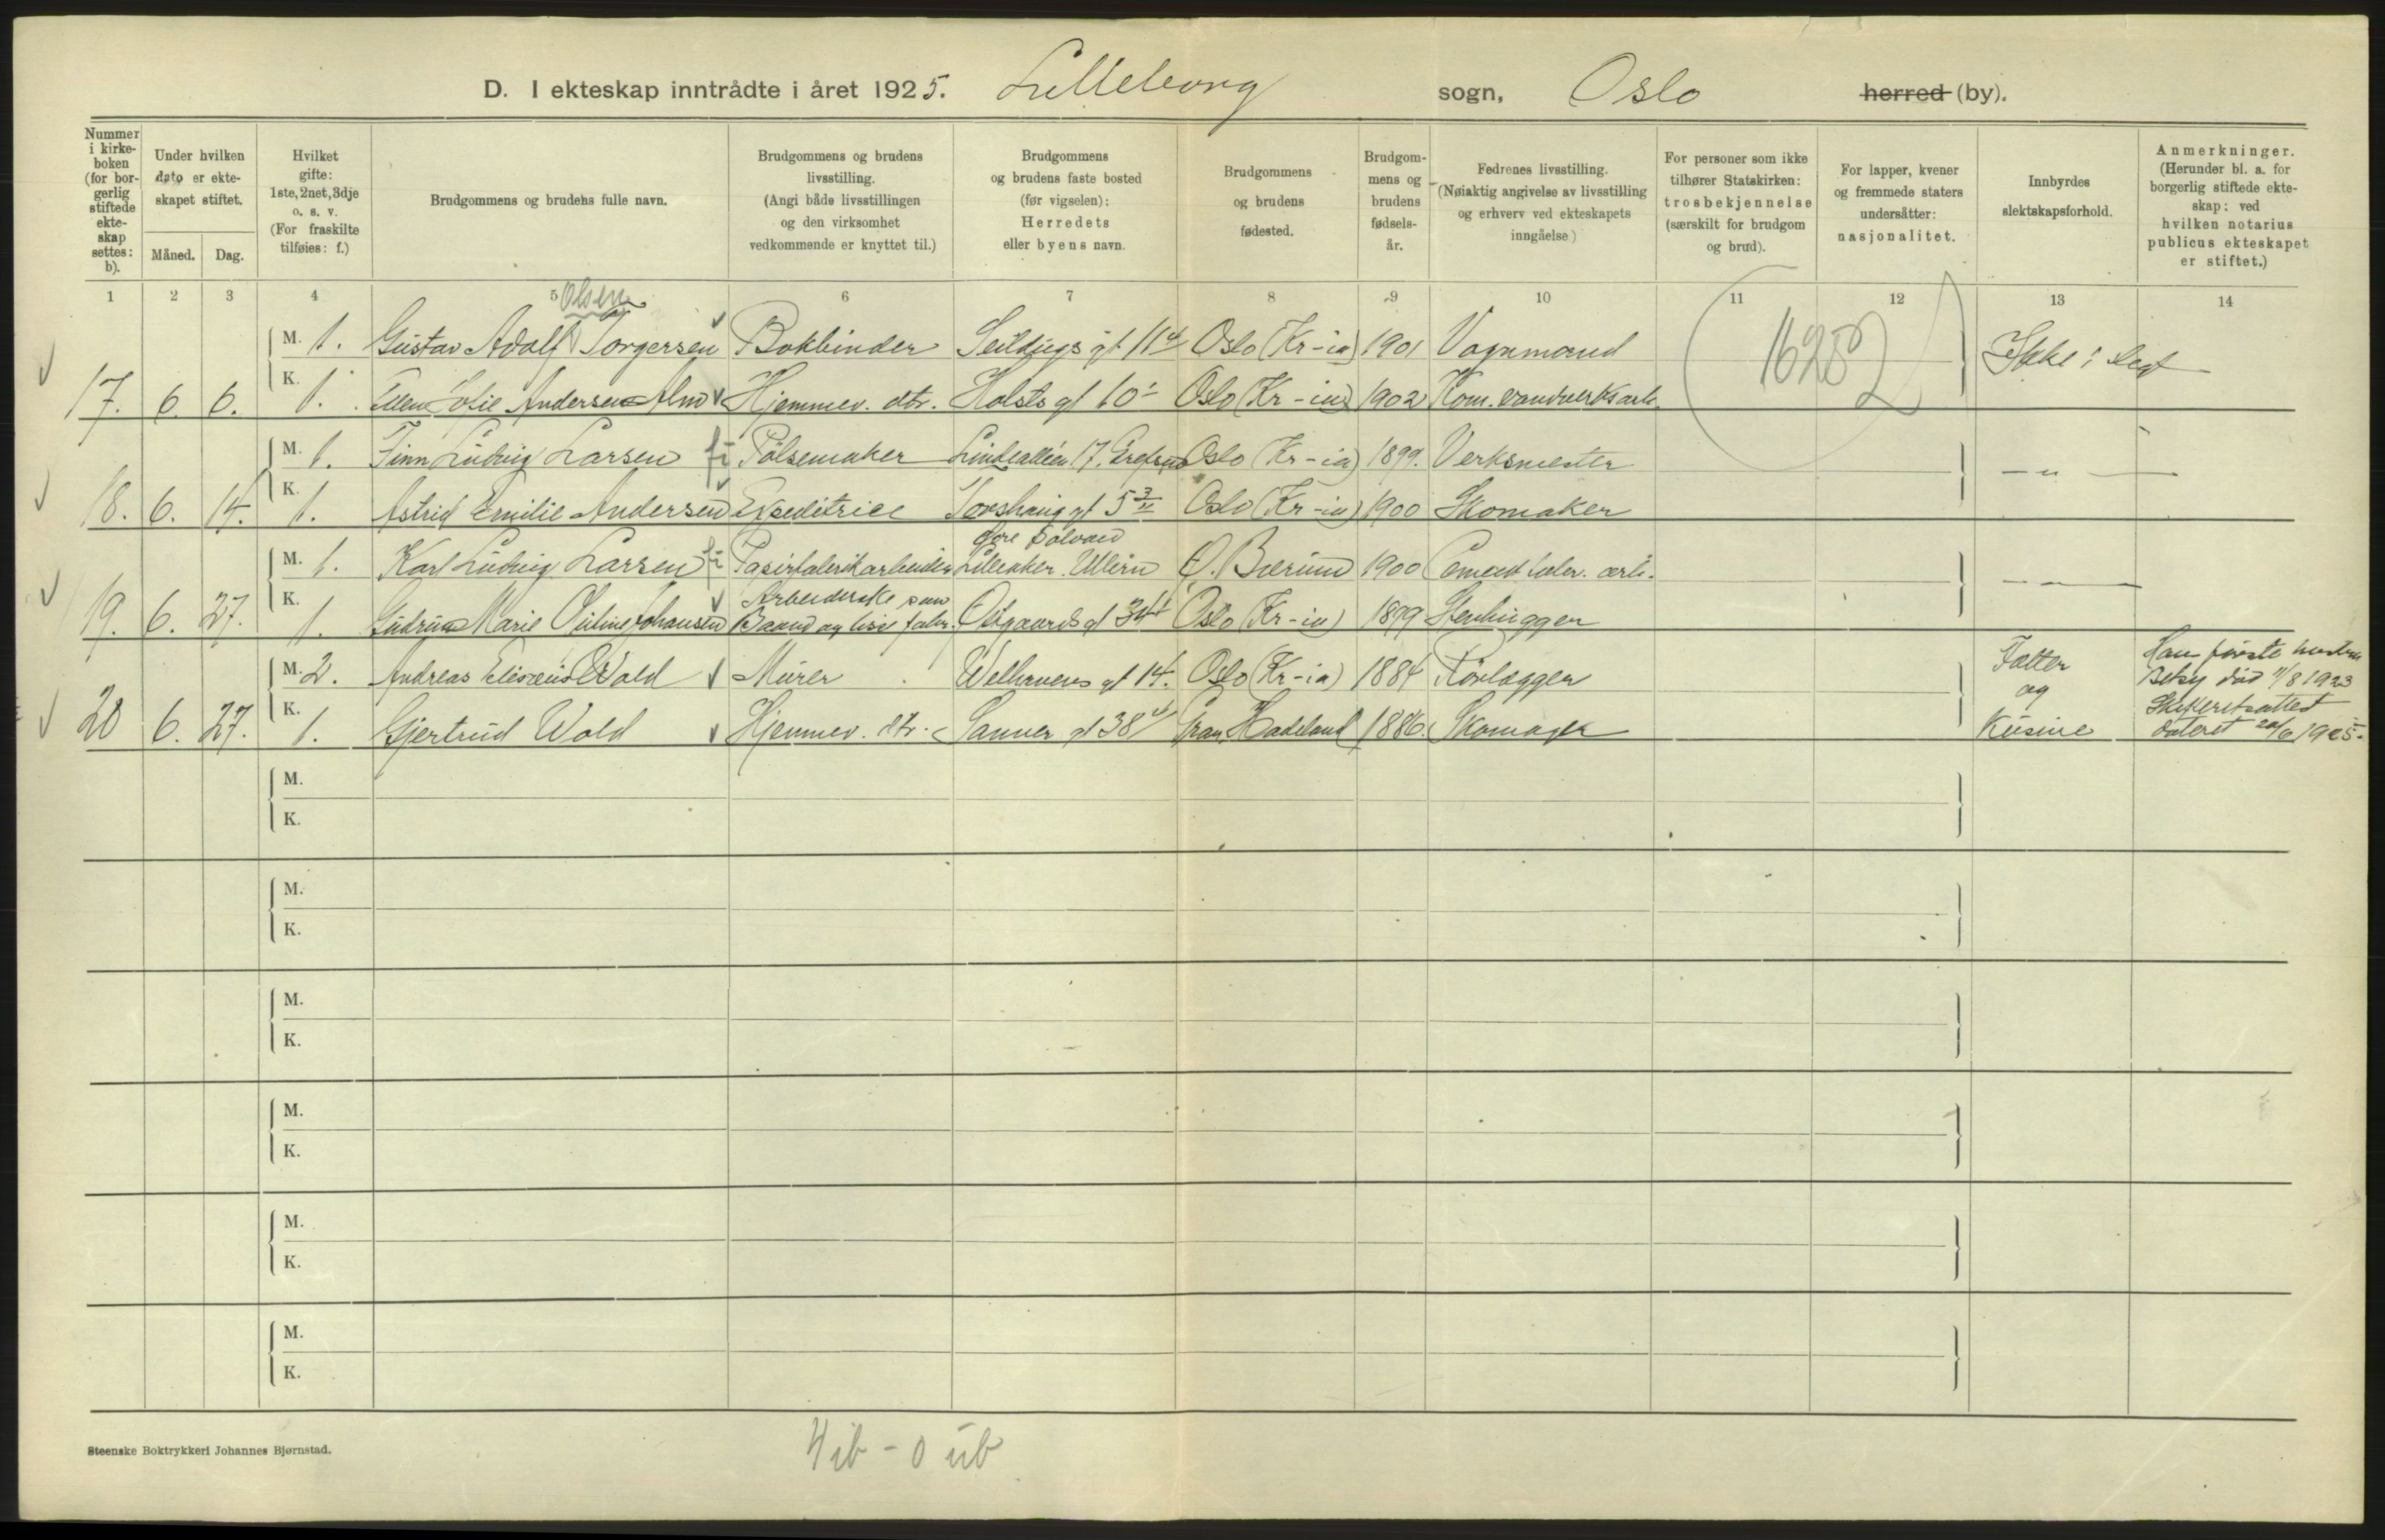 D. I ekteskap inntrådte i året 1925. Lilleborg sogn, Oslo herred (by).
Nummer i kirkeboken (for borgerlig stiftede ekteskap settes: b).
Under hvilken dato er ekteskapet stiftet.
Måned. Dag.
Hvilket gifte: 1ste, 2net, 3dje o. s. v. (For fraskilte tilføies: f.)
Brudgommens og brudens fulle navn.
Brudgommens og brudens livsstilling. (Angi både livsstillingen og den virksomhet vedkommende er knyttet til.)
Brudgommens og brudens faste bosted (før vigselen): Herredets eller byens navn.
Brudgommens og brudens fødested.
Brudgommens og brudens fødselsår.
Fedrenes livsstilling. (Nøiaktig angivelse av livsstilling og erhverv ved ekteskapets inngåelse)
For personer som ikke tilhører Statskirken: trosbekjennelse (særskilt for brudgom og brud).
For lapper, kvener og fremmede staters undersåtter: nasjonalitet.
Innbyrdes slektskapsforhold.
Anmerkninger. (Herunder bl. a. for borgerlig stiftede ekteskap: ved hvilken notarius publicus ekteskapet er stiftet.)
1 2 3 4 5 6 7 8 9 10 11 12 13 14
Olsen
M. 1. Gustav Adolf Torgersen Bokbinder Seildugs gt 11 Oslo (Kr-ia) 1901 Vognmand Ikke i slegt
17. 6. 6. K. 1. Andersen Alm Hjemmev. dtr. Holsts gt 10 Oslo (Kr-ia) 1902 Kom. vandverksarb.
1628
M. 1. Finn Ludvig Larsen Pølsemaker Lindealléen 17. Grefsen Oslo (Kr-ia) 1899. Verksmester — " —
18. 6. 14. K. 1. Astrid Emilie Andersen Expeditrice Torshaug gt 5 Oslo (Kr-ia) 1900 Skomaker
M. 1. Karl Ludvig Larsen Papirfabrikarbeider Lilleaker. Ullern Ø. Bærum 1900 Cement arb. — — —
19. 6. 27. K. 1. Gudrun Marie Johansen Arbeiderske paa Baand og lisse fabr. Østgaards gt 34 Oslo (Kr-ia) 1899 Stenhugger
M. 2. Andreas Wold Murer Welhavens gt 14. Oslo (Kr-ia) 1884 Rørlægger Fætter og Kusine
Hans første hustru Betsy død 11/8 1923 Skifteretsattest dateret 20/6 1925.
20 6. 27. K. 1. Gjertrud Wold Hjemmev. dtr. Sanner gt 38 Gran Hadeland 1886. Skomager
M.
K.
M.
K.
M.
K.
M.
K.
M.
K.
M.
K.
Steenske Boktrykkeri Johannes Bjørnstad.
4 ib - 0 ub